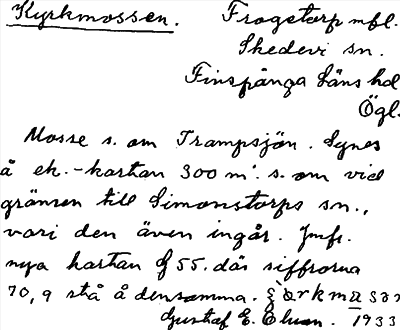 Kyrkmossen. Frogstorp mfl.
Skedevi sn.
Finspånga läns hd
Ögl.
Mosse s. om Trampsjön. Synes
å ek.-kartan 300 m. s. om vid
gränsen till Simonstorps sn.,
vari den även ingår. Jmfr.
nya kartan f 55. där siffrorna
70,9 stå å densamma.
Gustaf E. Ekman. 1933